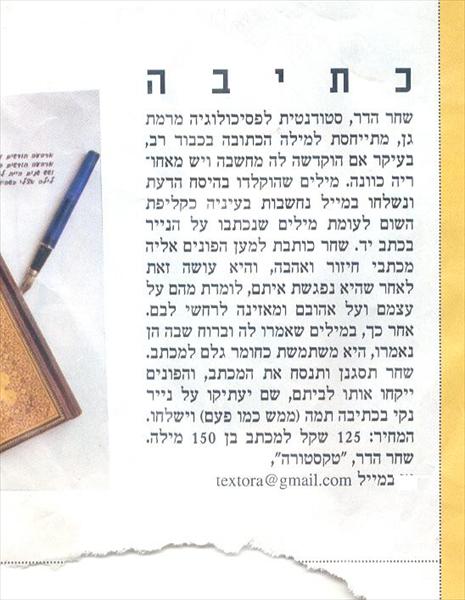 כתיבה
שחר הדר, סטודנטית לפסיכולוגיה מרמת
גן, מתייחסת למילה הכתובה בכבוד רב,
בעיקר אם הוקדשה לה מחשבה ויש מאחו־
ריה כוונה. מילים שהוקלדו בהיסח הדעת
ונשלחו במייל נחשבות בעיניה כקליפת
השום לעומת מילים שנכתבו על הנייר
בכתב יד. שחר כותבת למען הפונים אליה
מכתבי חיזור ואהבה, והיא עושה זאת
לאחר שהיא נפגשת איתם, לומדת מהם על
עצמם ועל אהובם ומאזינה לרחשי לבם.
אחר כך, במילים שאמרו לה וברוח שבה הן
נאמרו, היא משתמשת כחומר גלם למכתב.
שחר תסגנן ותנסח את המכתב, והפונים
ייקחו אותו לביתם, שם יעתיקו על נייר
נקי בכתיבה תמה (ממש כמו פעם) וישלחו.
המחיר: 125 שקל למכתב בן 150 מילה.
שחר הדר, "טקסטורה",
במייל textora@gmail.com